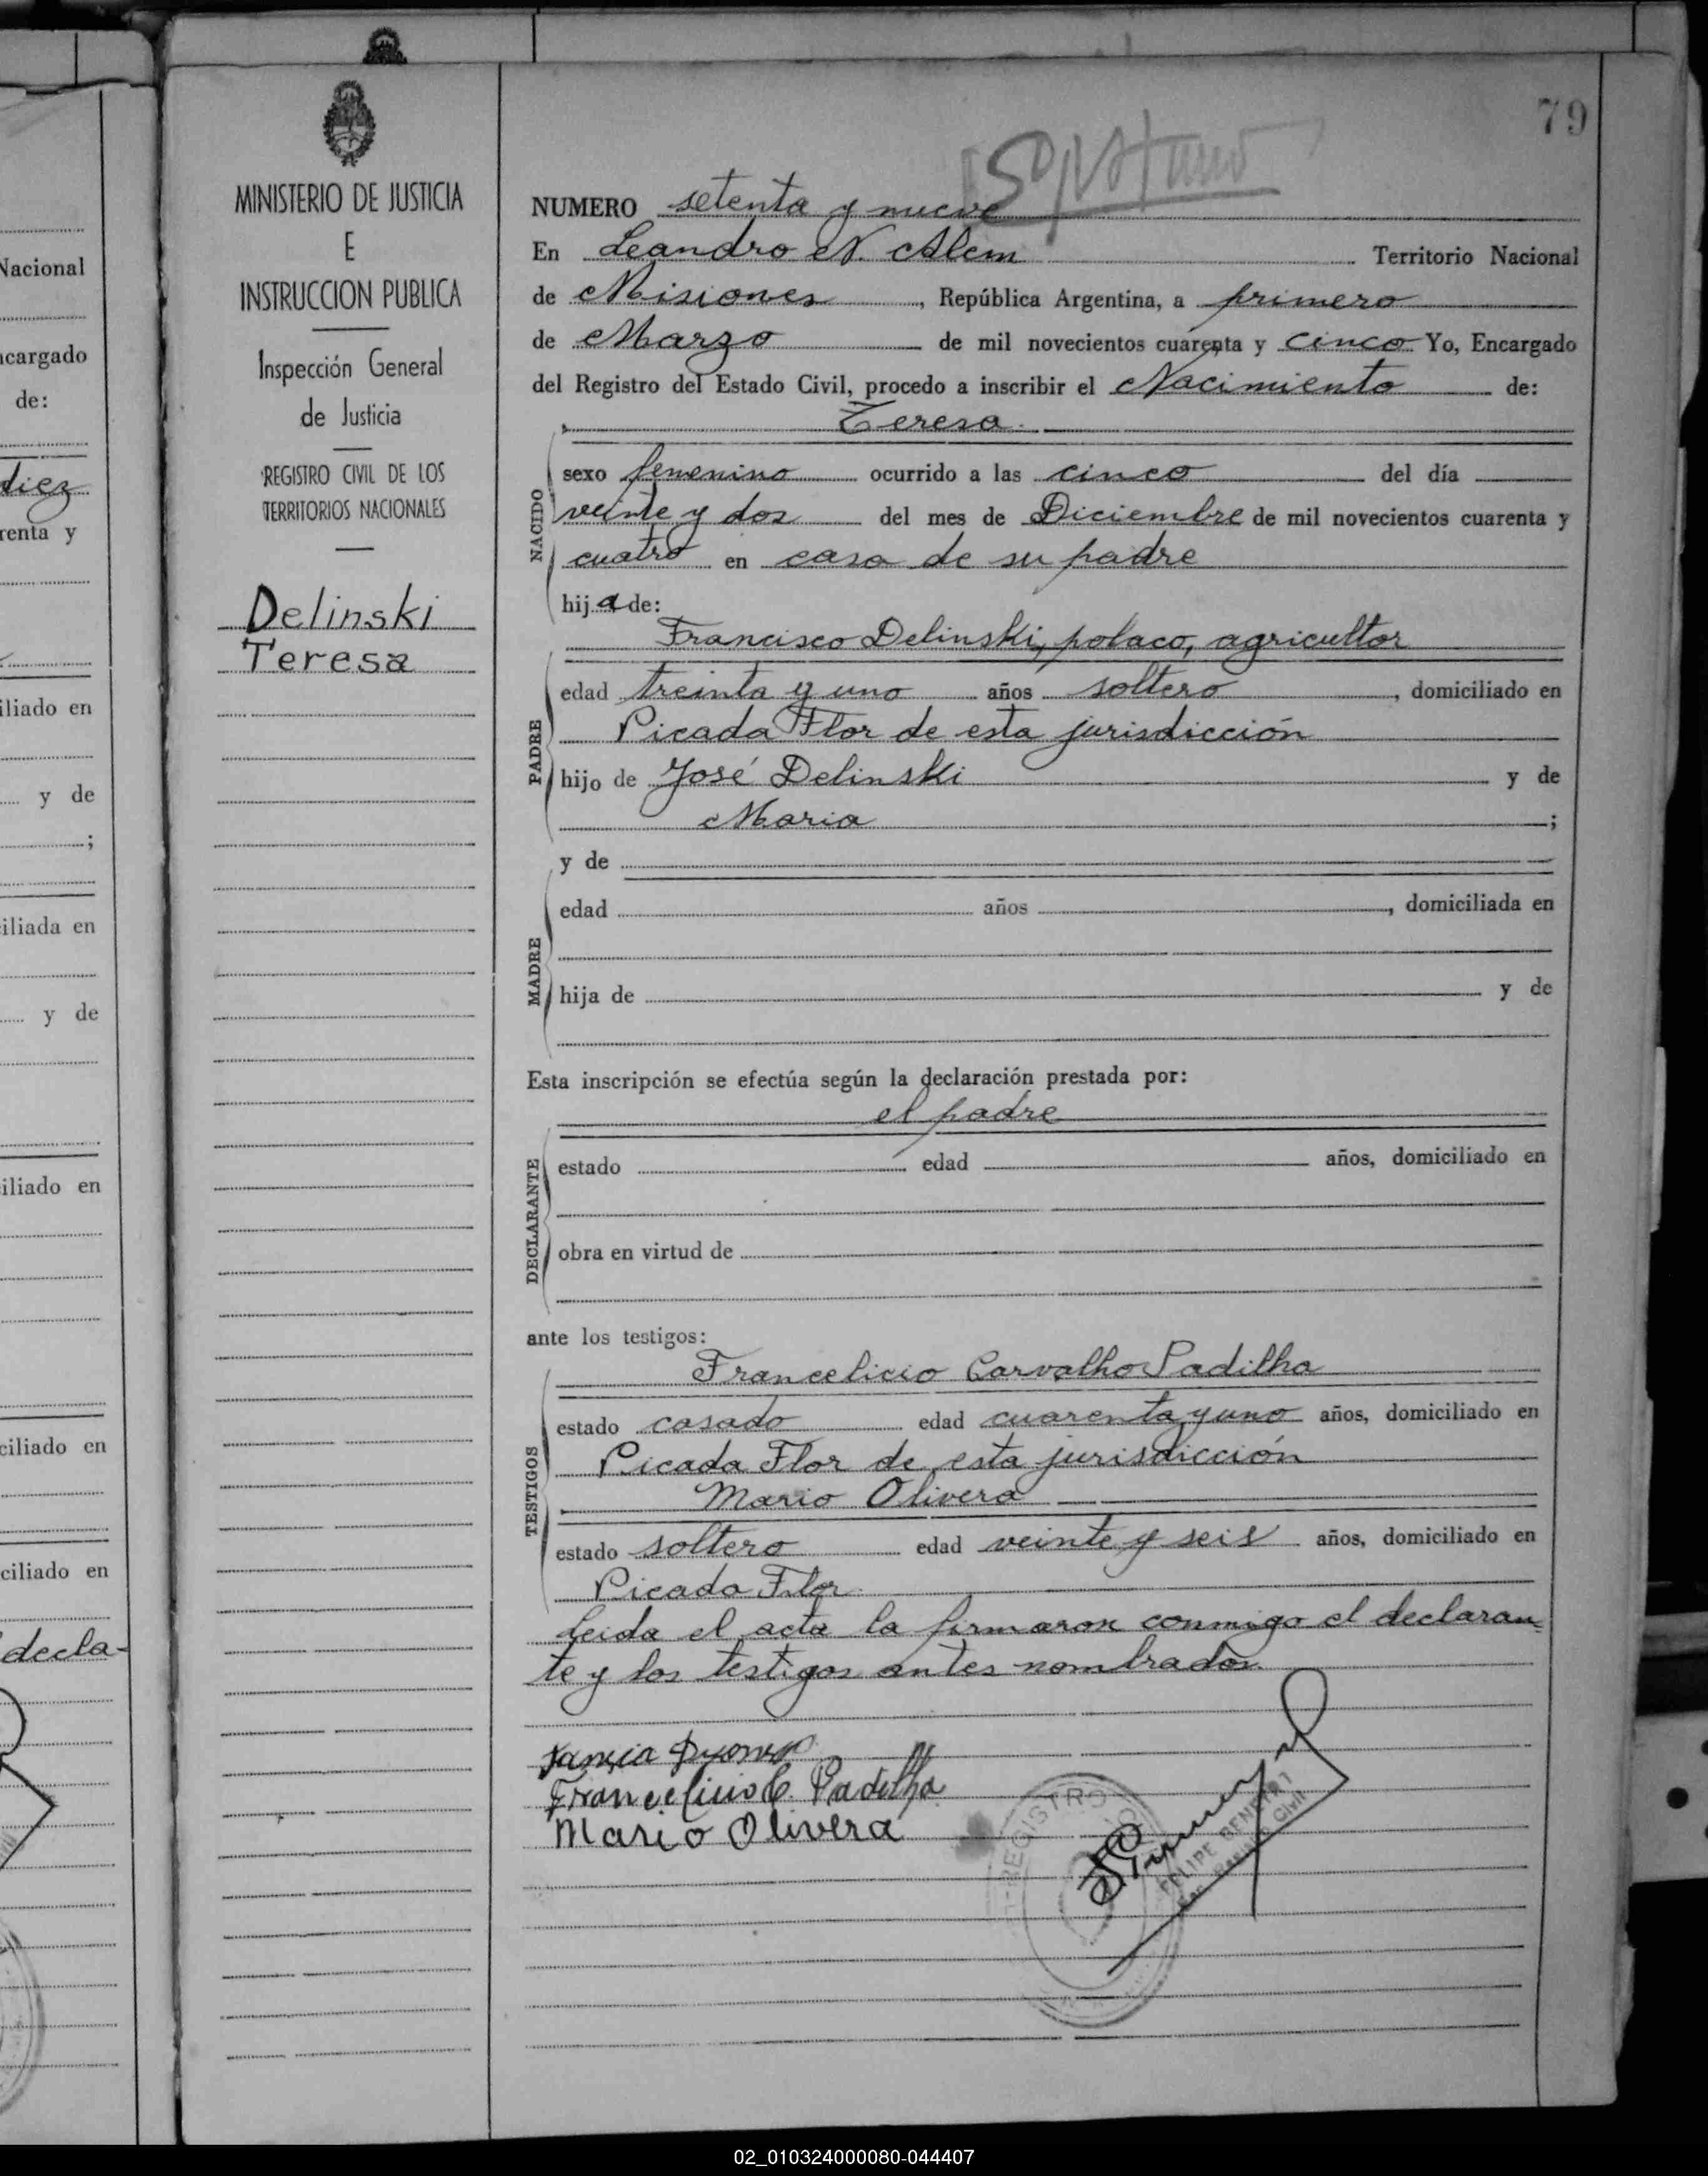 79
NUMERO setenta y nueve
En Leandro N. Alem Territorio Nacional
de Misiones, República Argentina, a primero
de Marzo de mil novecientos cuarenta y cinco Yo, Encargado
del Registro del Estado Civil, procedo a inscribir el Nacimiento de:
Teresa.
NACIDO
sexo femenino ocurrido a las cinco del día
veinte y dos del mes de Diciembre de mil novecientos cuarenta y
cuatro en casa de su padre
hija de:
Francisco Delinski, polaco, agricultor
PADRE
edad treinta y uno años soltero, domiciliado en
Picada Flor de esta jurisdicción
hijo de José Delinski y de
Maria ;
y de
MADRE
edad años , domiciliada en
hija de y de
Esta inscripción se efectúa según la declaración prestada por:
el padre
DECLARANTE
estado edad años, domiciliado en
obra en virtud de
ante los testigos:
Francelicio Carvalho Padilha
TESTIGOS
estado casado edad cuarenta y uno años, domiciliado en
Picada Flor de esta jurisdicción
Mario Olivera
estado soltero edad veinte y seis años, domiciliado en
Picada Flor.
Leida el acta la firmaron conmigo el declaran
te y los testigos antes nombrados.
Francelicio C. Padilha
Mario Olivera
REGISTRO
FELIPE
MINISTERIO DE JUSTICIA
E
INSTRUCCION PUBLICA
Inspección General
de Justicia
REGISTRO CIVIL DE LOS
TERRITORIOS NACIONALES
Delinski
Teresa
Nacional
ncargado
de:
diez
renta y
iliado en
y de
;
iliada en
y de
iliado en
ciliado en
ciliado en
decla-
02_010324000080-044407